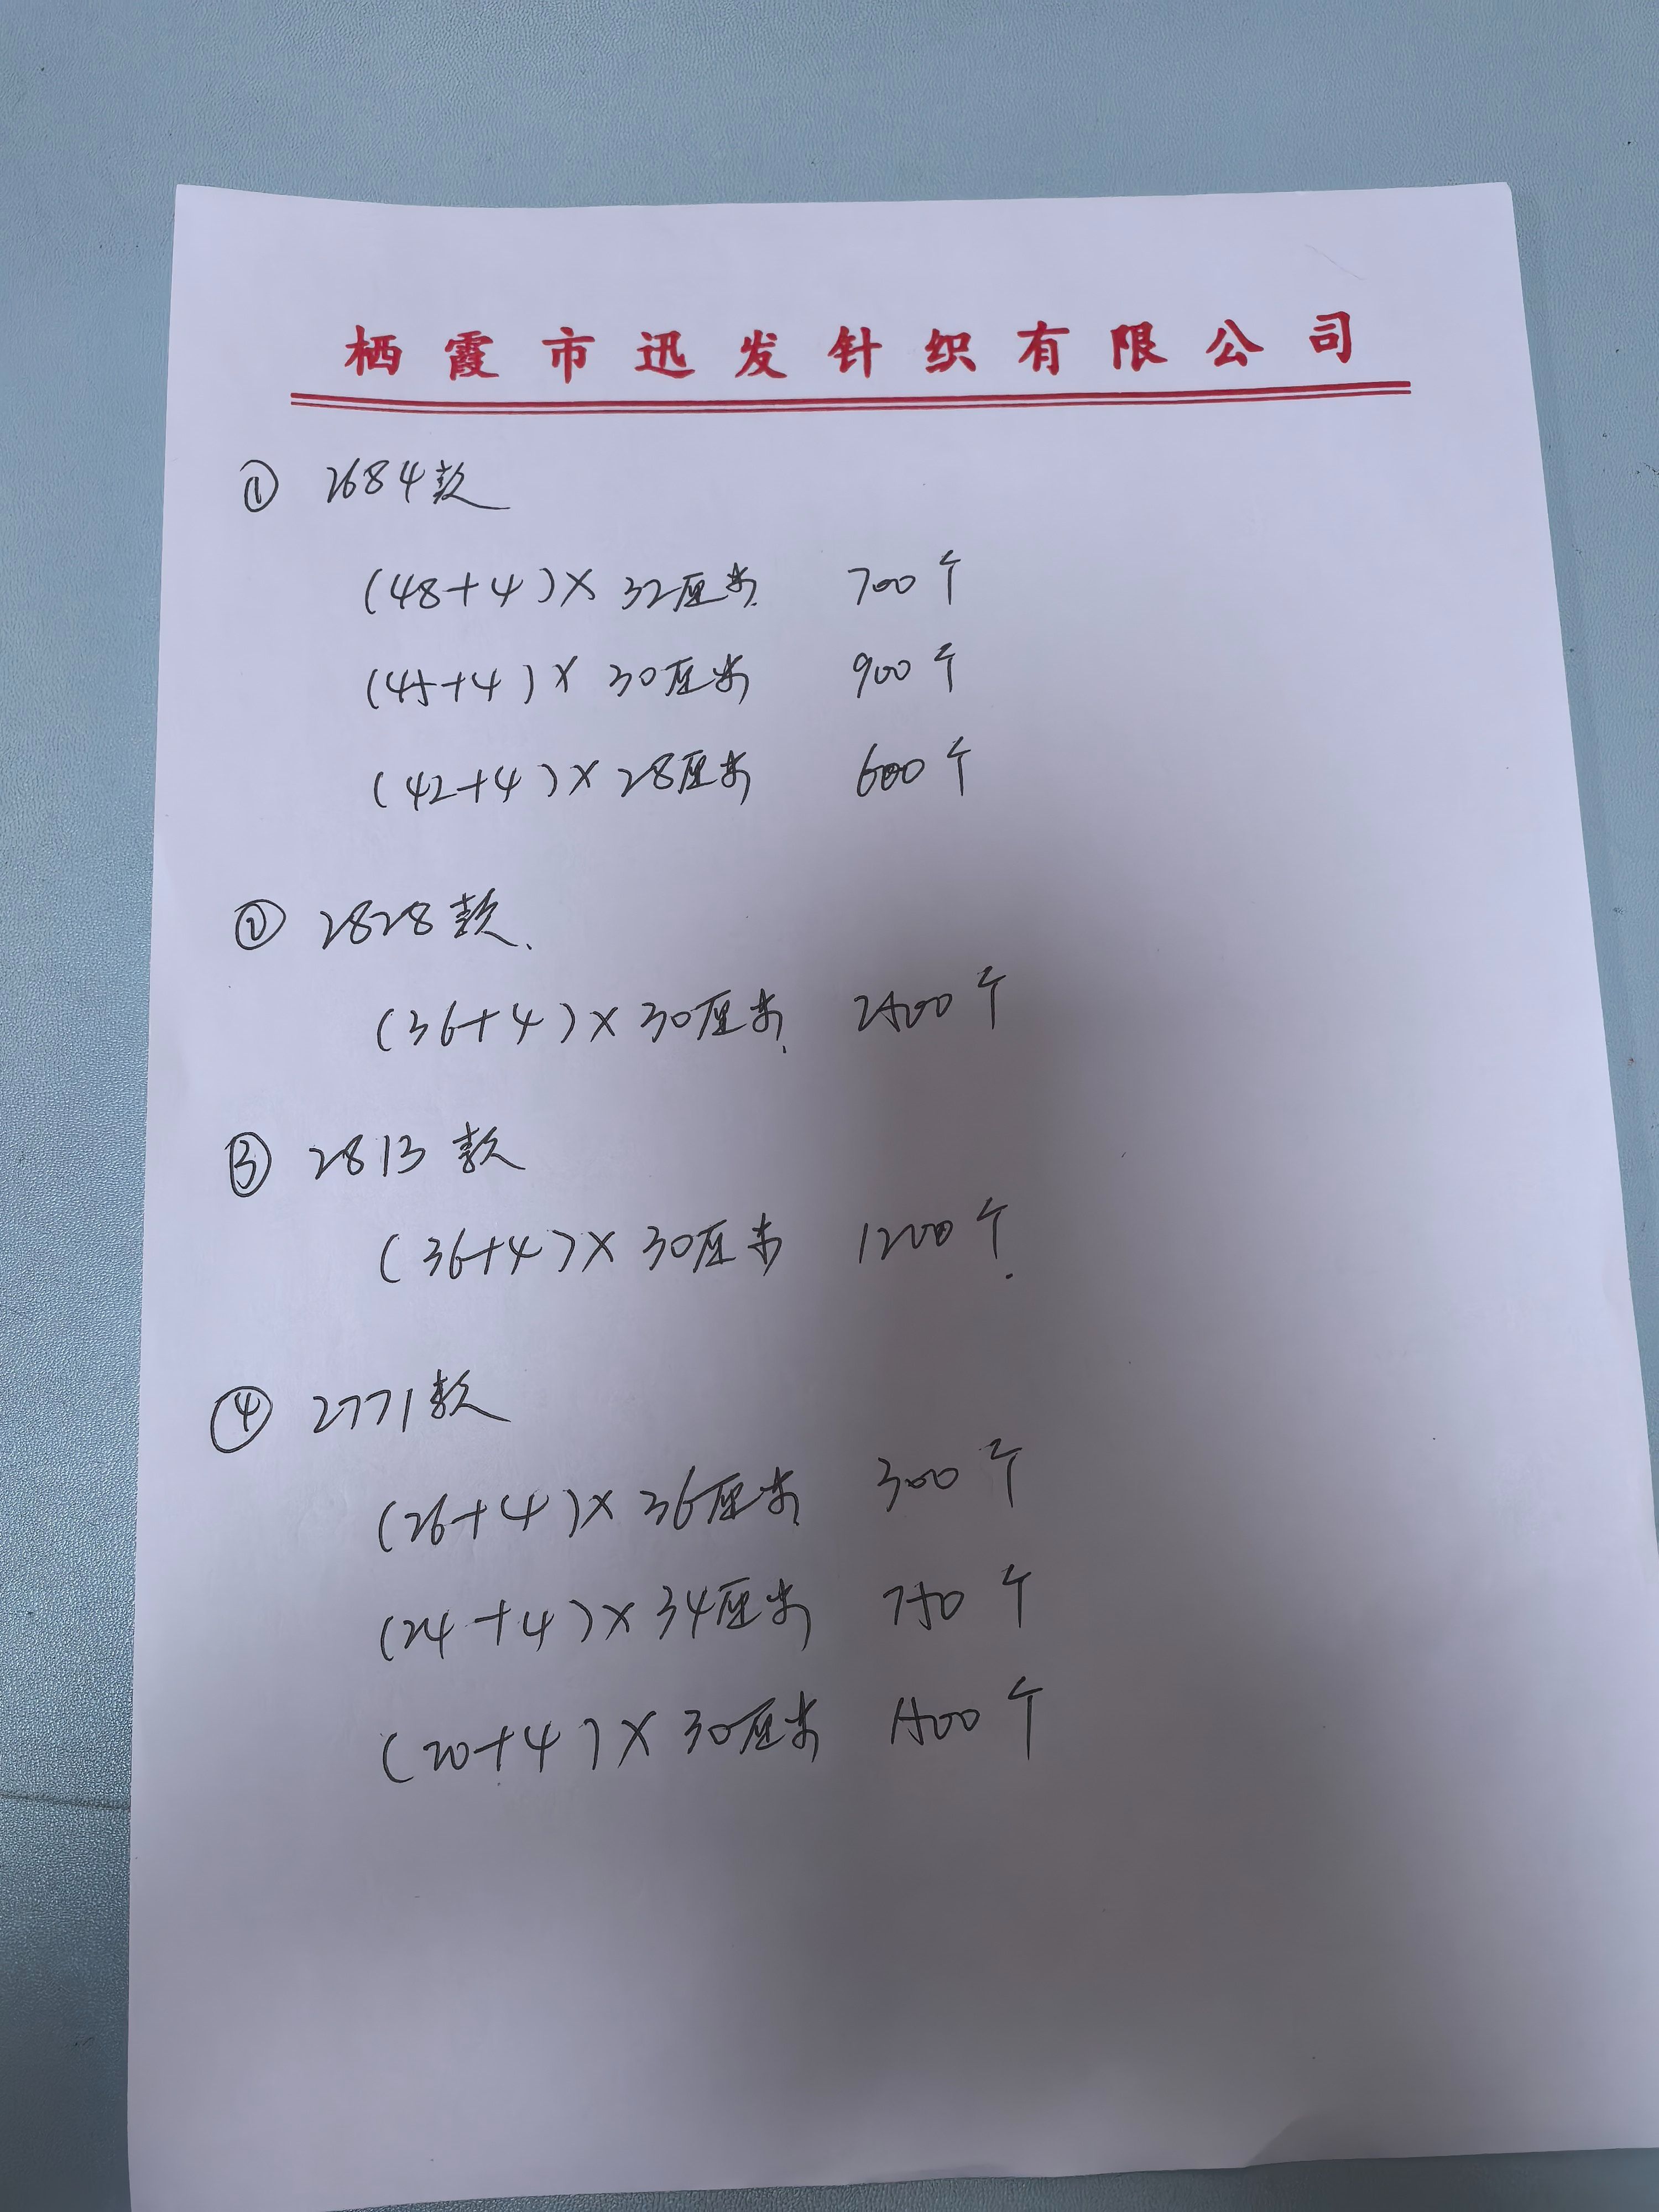 栖霞市迅发针织有限公司
① 2684款
(48+4)×32厘米 700个
(45+4)×30厘米 900个
(42+4)×28厘米 600个
② 2828款、
(36+4)×30厘米 2500个
③ 2813款
(36+4)×30厘米 1200个
④ 2771款
(26+4)×36厘米 300个
(24+4)×34厘米 750个
(20+4)×30厘米 1500个